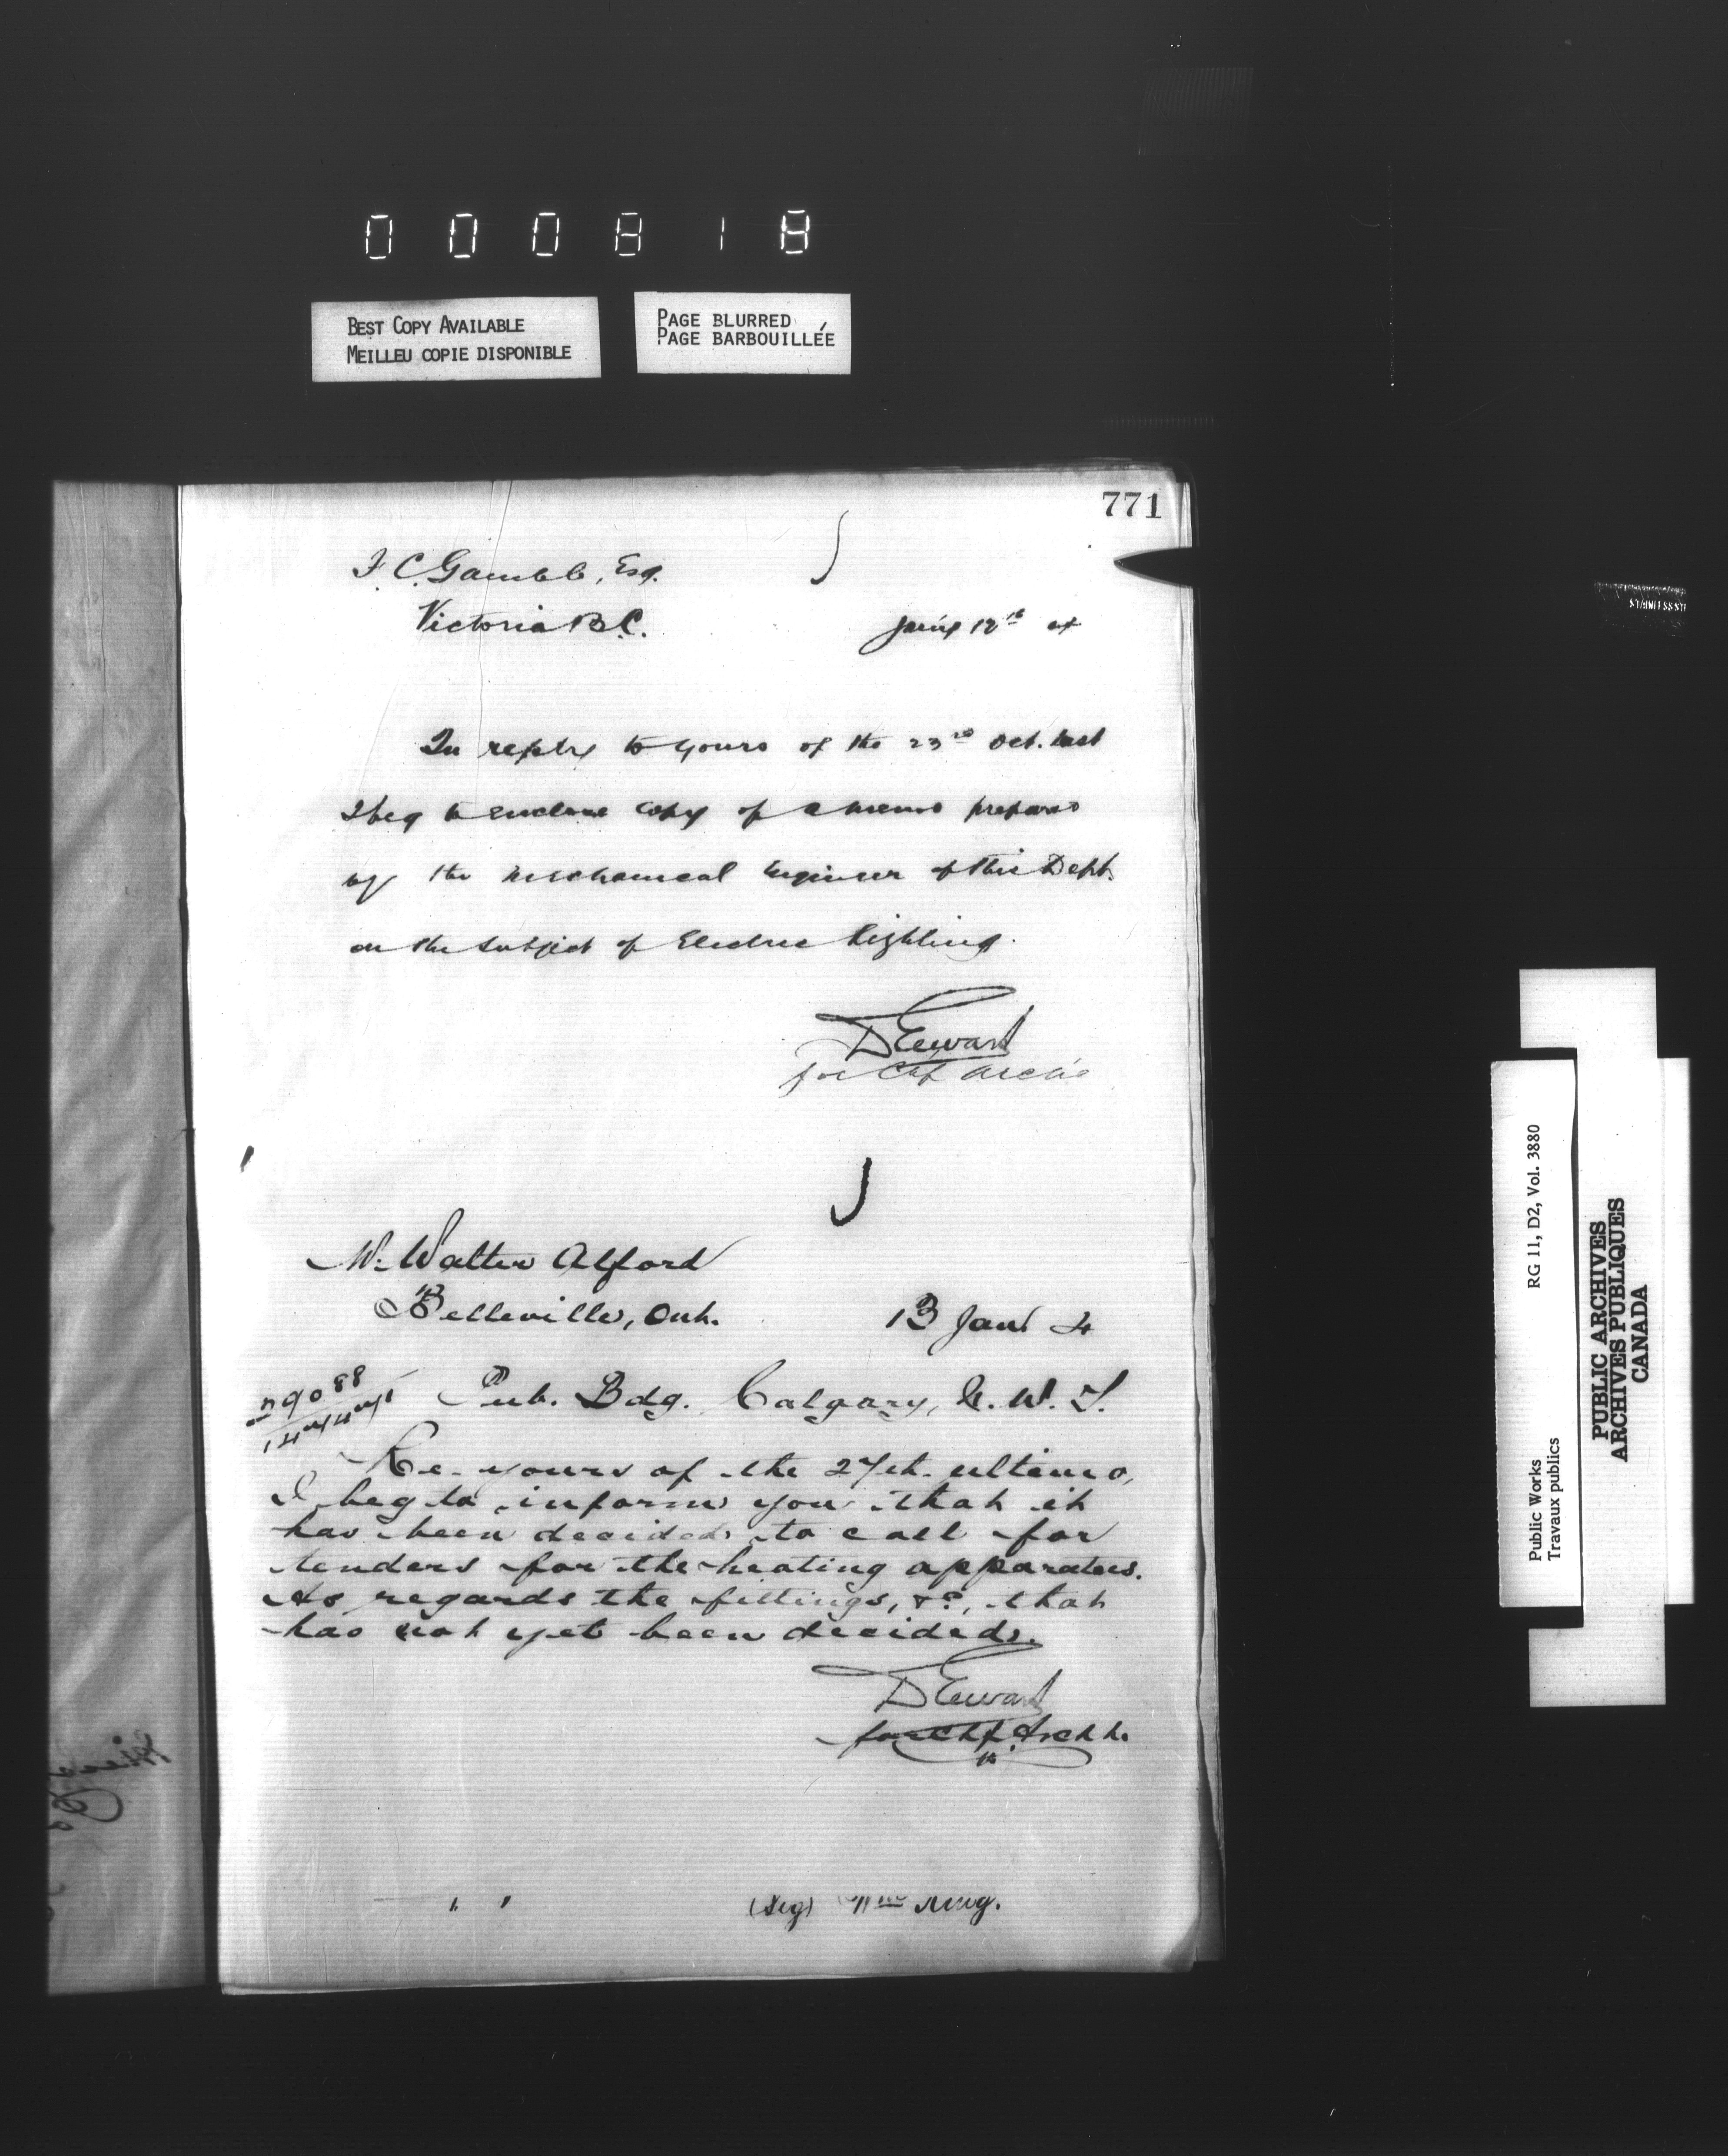 000818
BEST COPY AVAILABLE
MEILLEU COPIE DISPONIBLE
PAGE BLURRED
PAGE BARBOUILLÉE
771
F. C. Gamble, Esq.
Victoria B.C.
Jan'y 12th 4
In reply to yours of the 23rd Oct. last
I beg to enclose copy of a memo prepared
by the Mechanical Engineer of this Dept.
on the subject of Electric Lighting.
D Ewart
for Chf Archt
W. Walter Alford
Belleville, Ont.
13 Jan 4
Pub. Bdg. Calgary, N.W.T.
Re yours of the 27th ultimo,
I beg to inform you that it
has been decided to call for
tenders for the heating apparatus.
As regards the fittings, &c, that
has not yet been decided.
D Ewart
for Chf. Archt.
(Sig)
Public Works
Travaux publics
RG 11, D2, Vol. 3880
PUBLIC ARCHIVES
ARCHIVES PUBLIQUES
CANADA